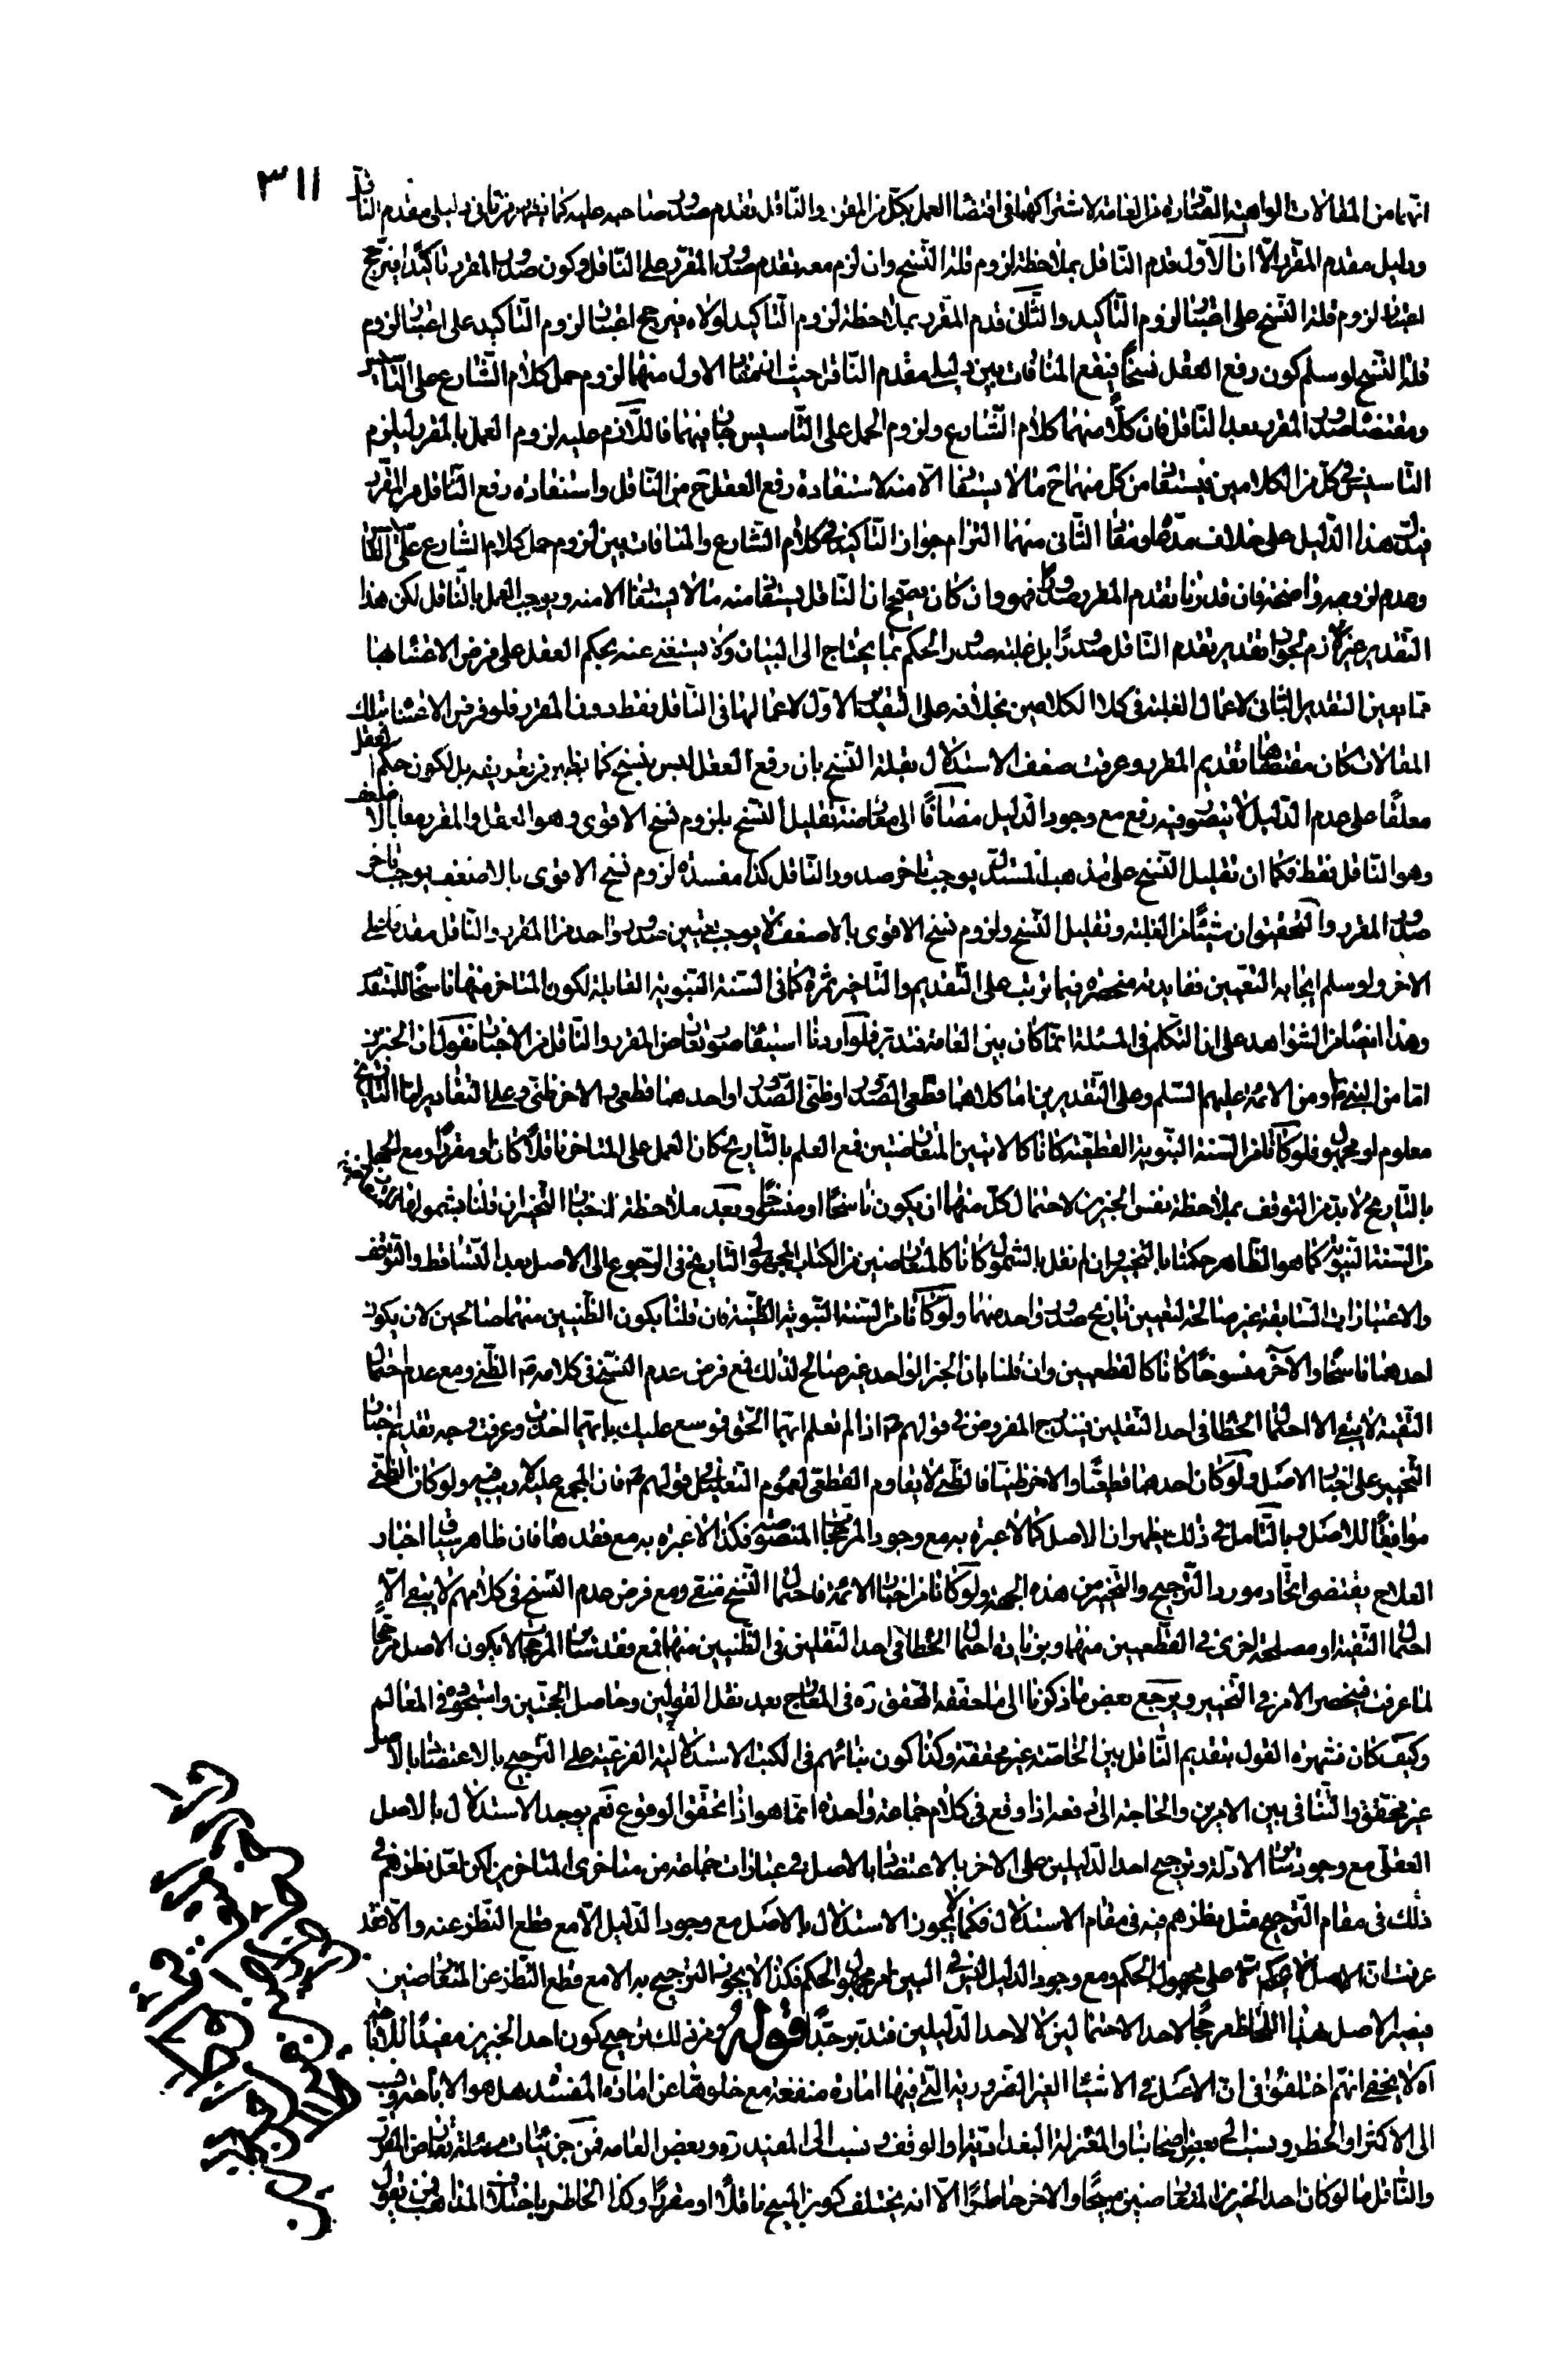 ٣١١
انهما من المقالات الواهية الصادرة من العامة لاشتراكهما فى اقتضاء العمل بكل من المقرر والناقل تقدم صدور صاحبه عليه كما يظهر من دليلى مقدم الناقل
ودليل مقدم المقرر الا ان الاول قدم الناقل بملاحظة لزوم قلة النسخ وان لزم معه تقدم صدور المقرر على الناقل وكون صدور المقرر تاكيدا فيرجح
اعتبار لزوم قلة النسخ على اعتبار لزوم التاكيد والثانى قدم المقرر بملاحظة لزوم التاكيد لولاه فيرجح اعتبار لزوم التاكيد على اعتبار لزوم
قلة النسخ لو سلم كون رفع العقل نسخا فيقع المنافات بين دليلى مقدم الناقل حيث ان مقتضى الاول منهما لزوم حمل كلام الشارع على التاكيد
ومقتضاه صدور المقرر بعد الناقل فان كلا منهما كلام الشارع ولزوم الحمل على التاسيس جار فيهما فاللازم عليه لزوم العمل بالمقرر ليلزم
التاسيس فى كل من الكلامين فيستفاد من كل منهما ح ما لا يستفاد الا منه لاستفادة رفع العقل ح من الناقل واستفادة رفع الناقل من المقرر
فيدل هذا الدليل على خلاف مدعاه ومفاد الثانى منهما التزام جواز التاكيد فى كلام الشارع والمنافات بين لزوم حمل كلام الشارع على التاسيس
وعدم لزومه واضحة فان قدرنا تقدم المقرر صدورا فهو وان كان يصح ان الناقل يستفاد منه ما لا يستفاد الا منه ويوجب العمل بالناقل لكن هذا
التقدير غير لازم لجواز تقدير تقدم الناقل صدورا بل غلبة صدور الحكم بما يحتاج الى البيان ولا يستغنى عنه بحكم العقل على فرض الاغتشاء بها
مما يعين التقدير الثانى لاعمال الغلبة فى كلا الكلامين بخلافه على التقدير الاول لاعمالها فى الناقل فقط دون المقرر فلو فرض الاغتشاء بتلك
المقالات كان مقتضاها تقديم المقرر وعرفت ضعف الاستدلال بقلة النسخ بان رفع العقل ليس بنسخ كما يظهر من تعريفه بل لكون حكم العقل
معلقا على عدم الدليل لا يتصور فيه رفع مع وجود الدليل مضافا الى معارضة تقليل النسخ بلزوم نسخ الاقوى وهو العقل والمقرر معا بالاضعف
وهو الناقل فقط فكما ان تقليل النسخ على مذهب المستدل يوجب تاخر صدور الناقل كذا مفسدة لزوم نسخ الاقوى بالاضعف يوجب تاخر
صدور المقرر والتحقيق ان شيئا من الغلبة وتقليل النسخ ولزوم نسخ الاقوى بالاضعف لا يوجب تعيين صدور واحد من المقرر والناقل مقدما على
الاخر ولو سلم ايجابه التعيين ففايدته منحصرة فيما ترتب على التقديم والتاخير ثمرة كما فى السنة النبوية القابلة لكون المتاخر منها ناسخا للمتقدم
وهذا ايضا من الشواهد على ان التكلم فى المسئلة انما كان بين العامة فتدبر فلو اردنا استيفاء صور تعارض المقرر والناقل من الاخبار نقول ان الخبرين
اما من النبى ص او من الائمة عليهم السلم وعلى التقديرين اما كلاهما قطعى الصدور او ظنى الصدور او احدهما قطعى والاخر ظنى وعلى التقادير اما التاريخ
معلوم او مجهول فلو كانا من السنة النبوية القطعية كانا كالايتين المتعارضتين فمع العلم بالتاريخ كان العمل على المتاخر ناقلا كان او مقررا ومع الجهل
بالتاريخ لا بد من التوقف بملاحظة نفس الخبرين لاحتمال كل منهما ان يكون ناسخا او منسوخا وبعد ملاحظة اخبار التخيير ان قلنا بشمولها
من السنة النبوية كما هو الظاهر حكمنا بالتخيير وان لم نقل بالشمول كانا كالمتعارضين من الكتاب المجهولى التاريخ فى الرجوع الى الاصل بعد التساقط والتوقف
والاعتبارات السابقة غير صالحة لتعيين تاريخ صدور واحد منهما ولو كانا من السنة النبوية الظنية فان قلنا بكون الظنيين منهما صالحين لان يكون
احدهما ناسخا والاخر منسوخا كانا كالقطعيين وان قلنا بان الخبر الواحد غير صالح لذلك فمع فرض عدم النسخ فى كلامه ص الظنى ومع عدم احتمال
التقية لا يبقى الا احتمال الخطا فى احد النقلين فيندرج المفروض فى قولهم ع اذا لم تعلم ايهما الحق فموسع عليك بايهما اخذت وعرفت وجه تقديم اخبار
التخيير على اخبار الاصل ولو كان احدهما قطعيا والاخر ظنيا فالظنى لا يقاوم القطعى لعموم التعليل فى قولهم ع فان المجمع عليه لا ريب فيه ولو كان الظنى
موافقا للاصل وبالتامل فى ذلك يظهر ان الاصل كما لا عبرة به مع وجود المرجحات المنصوصة فكذا لا عبرة به مع فقدها فان ظاهر سياق اخبار
العلاج يقتضى اتحاد مورد الترجيح والتخيير من هذه الجهة ولو كانا من اخبار الائمة فاحتمال النسخ منتف ومع فرض عدم النسخ فى كلامهم لا يبقى الا
احتمال التقية او مصلحة اخرى فى القطعيين منهما وبزيادة احتمال الخطا فى احد النقلين فى الظنيين منهما فمع فقد سائر المرجحات لا يكون الاصل مرجحا
لما عرفت فينحصر الامر فى التخيير ويرجع بعض ما ذكرنا الى ما حققه المحقق ره فى المعارج بعد نقل القولين وحاصل الحجتين واستجوده فى المعالم
وكيف كان فشهرة القول بتقديم الناقل بين الخاصة غير محققة وكذا كون بنائهم فى الكتب الاستدلالية الفرعية على الترجيح بالاعتضاد بالاصل
غير محقق والتنافى بين الامرين والحاجة الى دفعه اذا وقع فى كلام جماعة واحدة انما هو اذا تحقق الوقوع نعم يوجد الاستدلال بالاصل
العقلى مع وجود سائر الادلة وترجيح احد الدليلين على الاخر بالاعتضاد بالاصل فى عبارات جماعة من متاخرى المتاخرين لكن لعل نظرهم فى
ذلك فى مقام الترجيح مثل نظرهم فيه فى مقام الاستدلال فكما لا يجوز الاستدلال بالاصل مع وجود الدليل الا مع قطع النظر عنه والا فقد
عرفت ان الاصل لا يحكم الا على مجهول الحكم ومع وجود الدليل ليس فى البين امر مجهول الحكم فكذا لا يجوز الترجيح به الا مع قطع النظر عن المتعارضين
فيصير الاصل بهذا اللحاظ مرجحا لاحد الاحتمالين لا لاحد الدليلين فتدبر جدا قوله ومن ذلك ترجيح كون احد الخبرين مفيدا للاباحة
اه لا يخفى انهم اختلفوا فى ان الاصل فى الاشياء الغير الضرورية التى فيها امارة منفعة مع خلوها عن امارة المفسدة هل هو الاباحة ونسب
الى الاكثر او الحظر ونسب الى بعض اصحابنا والمعتزلة البغدادية او الوقف ونسب الى المفيد ره وبعض العامة فمن جزئيات مسئلة تعارض المقرر
والناقل ما لو كان احد الخبرين المتعارضين مبيحا والاخر حاظرا الا انه يختلف كون المبيح ناقلا او مقررا وكذا الحاظر باختلاف المذاهب فمن يقول